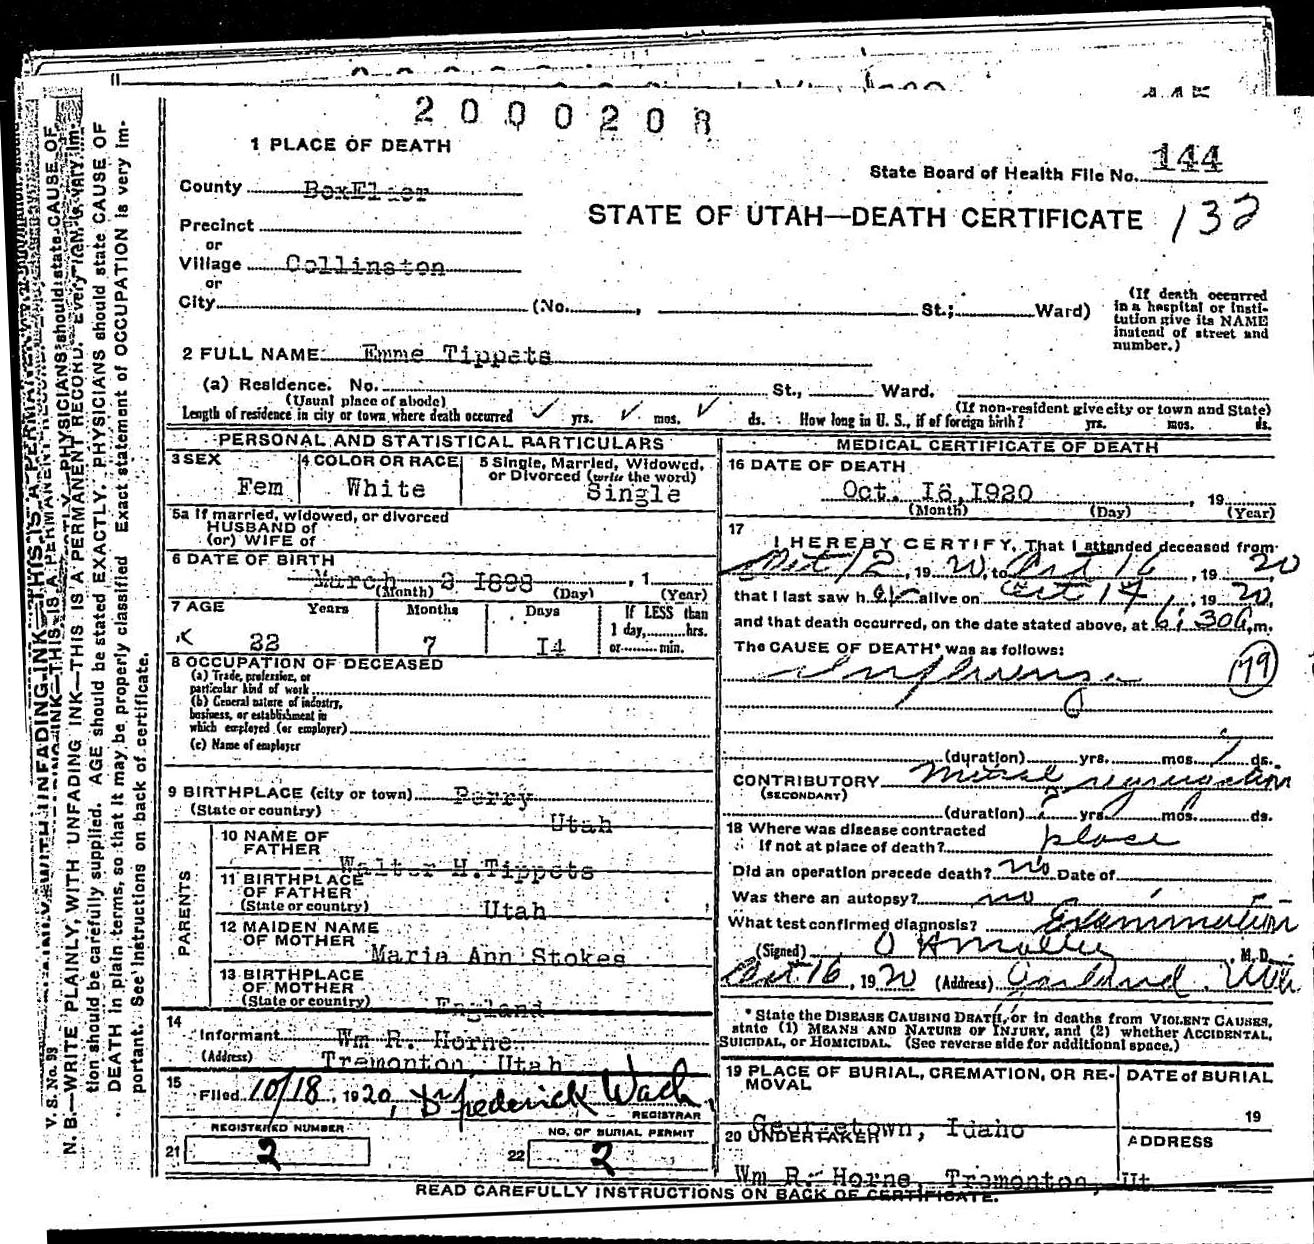 2000208
1 PLACE OF DEATH
State Board of Health File No. 144
County BoxElder
STATE OF UTAH—DEATH CERTIFICATE 132
Precinct
or
Village Collinston
or
City (No. , St.; Ward)
(If death occurred in a hospital or institution give its NAME instead of street and number.)
2 FULL NAME Emme Tippets
(a) Residence. No. St., Ward.
(Usual place of abode) (If non-resident give city or town and State)
Length of residence in city or town where death occurred ✓ yrs. ✓ mos. ✓ ds. How long in U. S., if of foreign birth? yrs. mos. ds.
PERSONAL AND STATISTICAL PARTICULARS
3 SEX
Fem
4 COLOR OR RACE
White
5 Single, Married, Widowed, or Divorced (write the word)
Single
5a If married, widowed, or divorced
HUSBAND of
(or) WIFE of
6 DATE OF BIRTH
March 2 1898 , 1
(Month) (Day) (Year)
7 AGE Years Months Days If LESS than
1 day, hrs.
or min.
22 7 I4
8 OCCUPATION OF DECEASED
(a) Trade, profession, or
particular kind of work
(b) General nature of industry,
business, or establishment in
which employed (or employer)
(c) Name of employer
9 BIRTHPLACE (city or town) Perry
(State or country) Utah
PARENTS
10 NAME OF
FATHER
Walter H.Tippets
11 BIRTHPLACE
OF FATHER
(State or country) Utah
12 MAIDEN NAME
OF MOTHER
Maria Ann Stokes
13 BIRTHPLACE
OF MOTHER
(State or country) England
14
Informant Wm R. Horne
(Address) Tremonton, Utah
15
Filed 10/18, 1920, Frederick Wach
REGISTRAR
REGISTERED NUMBER
21 2
NO. OF BURIAL PERMIT
22 2
MEDICAL CERTIFICATE OF DEATH
16 DATE OF DEATH
Oct. I6,I920 , 19
(Month) (Day) (Year)
17
I HEREBY CERTIFY, That I attended deceased from
Oct 12, 1920, to Oct 16, 1920,
that I last saw her alive on Oct 14, 1920,
and that death occurred, on the date stated above, at 6:30a.m.
The CAUSE OF DEATH* was as follows:
Influenza 79
(duration) yrs. mos. 7 ds.
CONTRIBUTORY Mitral regurgitation
(SECONDARY)
(duration) yrs. mos. ds.
18 Where was disease contracted
If not at place of death? place
Did an operation precede death? no Date of
Was there an autopsy? no
What test confirmed diagnosis? Examination
(Signed) , M. D.
Oct 16, 1920 (Address) Garland Utah
* State the DISEASE CAUSING DEATH, or in deaths from VIOLENT CAUSES,
state (1) MEANS AND NATURE OF INJURY, and (2) whether ACCIDENTAL,
SUICIDAL, or HOMICIDAL. (See reverse side for additional space.)
19 PLACE OF BURIAL, CREMATION, OR REMOVAL
Georgetown, Idaho
DATE of BURIAL
19
20 UNDERTAKER
Wm R. Horne, Tremonton, Ut
ADDRESS
READ CAREFULLY INSTRUCTIONS ON BACK OF CERTIFICATE.
V. S. No. 93
N. B.—WRITE PLAINLY, WITH UNFADING INK—THIS IS A PERMANENT RECORD. Every item of information should be carefully supplied. AGE should be stated EXACTLY. PHYSICIANS should state CAUSE OF DEATH in plain terms, so that it may be properly classified. Exact statement of OCCUPATION is very important. See instructions on back of certificate.